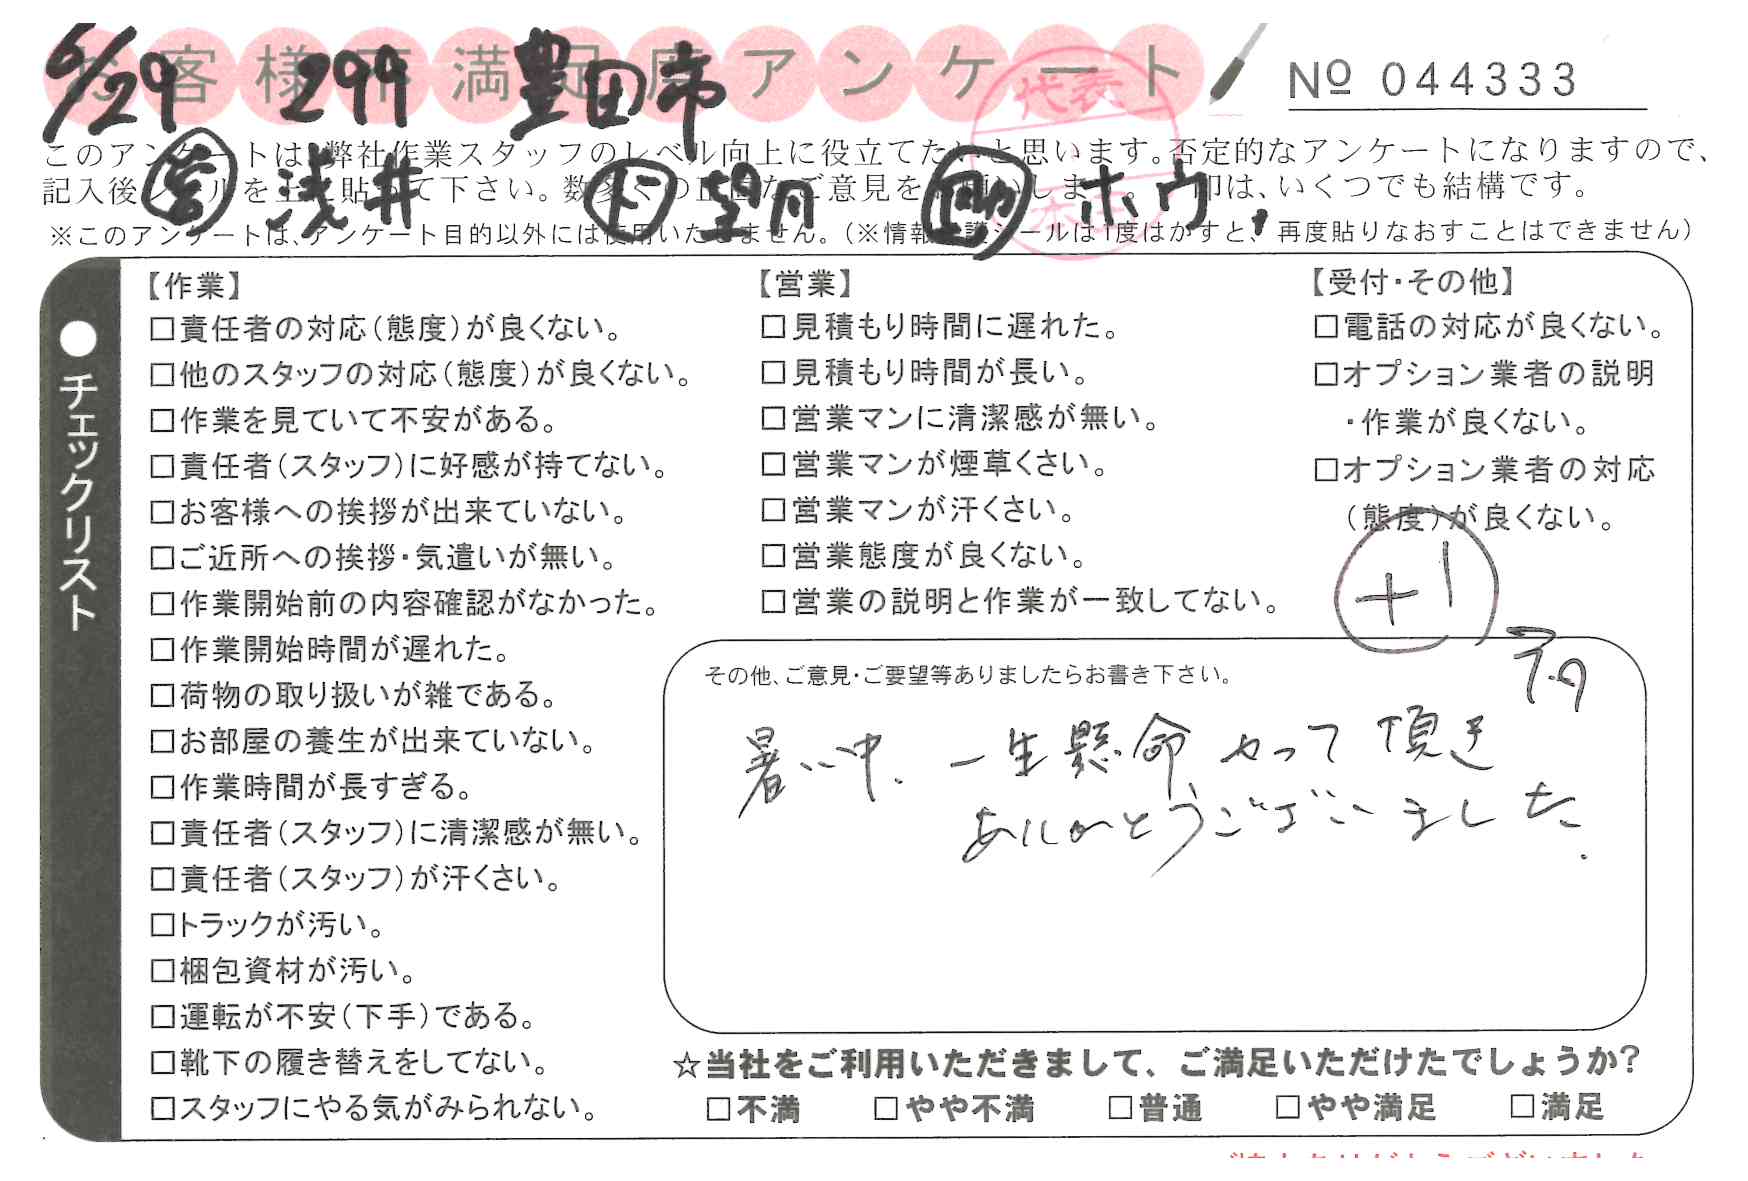 お客様不満足度アンケート
6/29 299 豊田市
№ 044333
このアンケートは、弊社作業スタッフのレベル向上に役立てたいと思います。否定的なアンケートになりますので、
記入後シールを上に貼って下さい。数多くの正直なご意見をお願いします。 印は、いくつでも結構です。
営 浅井 ド 望月 助 ホウ
※このアンケートは、アンケート目的以外には使用いたしません。(※情報保護シールは1度はがすと、再度貼りなおすことはできません)
代表
●チェックリスト
【作業】
□責任者の対応(態度)が良くない。
□他のスタッフの対応(態度)が良くない。
□作業を見ていて不安がある。
□責任者(スタッフ)に好感が持てない。
□お客様への挨拶が出来ていない。
□ご近所への挨拶・気遣いが無い。
□作業開始前の内容確認がなかった。
□作業開始時間が遅れた。
□荷物の取り扱いが雑である。
□お部屋の養生が出来ていない。
□作業時間が長すぎる。
□責任者(スタッフ)に清潔感が無い。
□責任者(スタッフ)が汗くさい。
□トラックが汚い。
□梱包資材が汚い。
□運転が不安(下手)である。
□靴下の履き替えをしてない。
□スタッフにやる気がみられない。
【営業】
□見積もり時間に遅れた。
□見積もり時間が長い。
□営業マンに清潔感が無い。
□営業マンが煙草くさい。
□営業マンが汗くさい。
□営業態度が良くない。
□営業の説明と作業が一致してない。
【受付・その他】
□電話の対応が良くない。
□オプション業者の説明
・作業が良くない。
□オプション業者の対応
(態度)が良くない。
+1
その他、ご意見・ご要望等ありましたらお書き下さい。
暑い中、一生懸命やって頂き
ありがとうございました.
☆当社をご利用いただきまして、ご満足いただけたでしょうか?
□不満 □やや不満 □普通 □やや満足 □満足